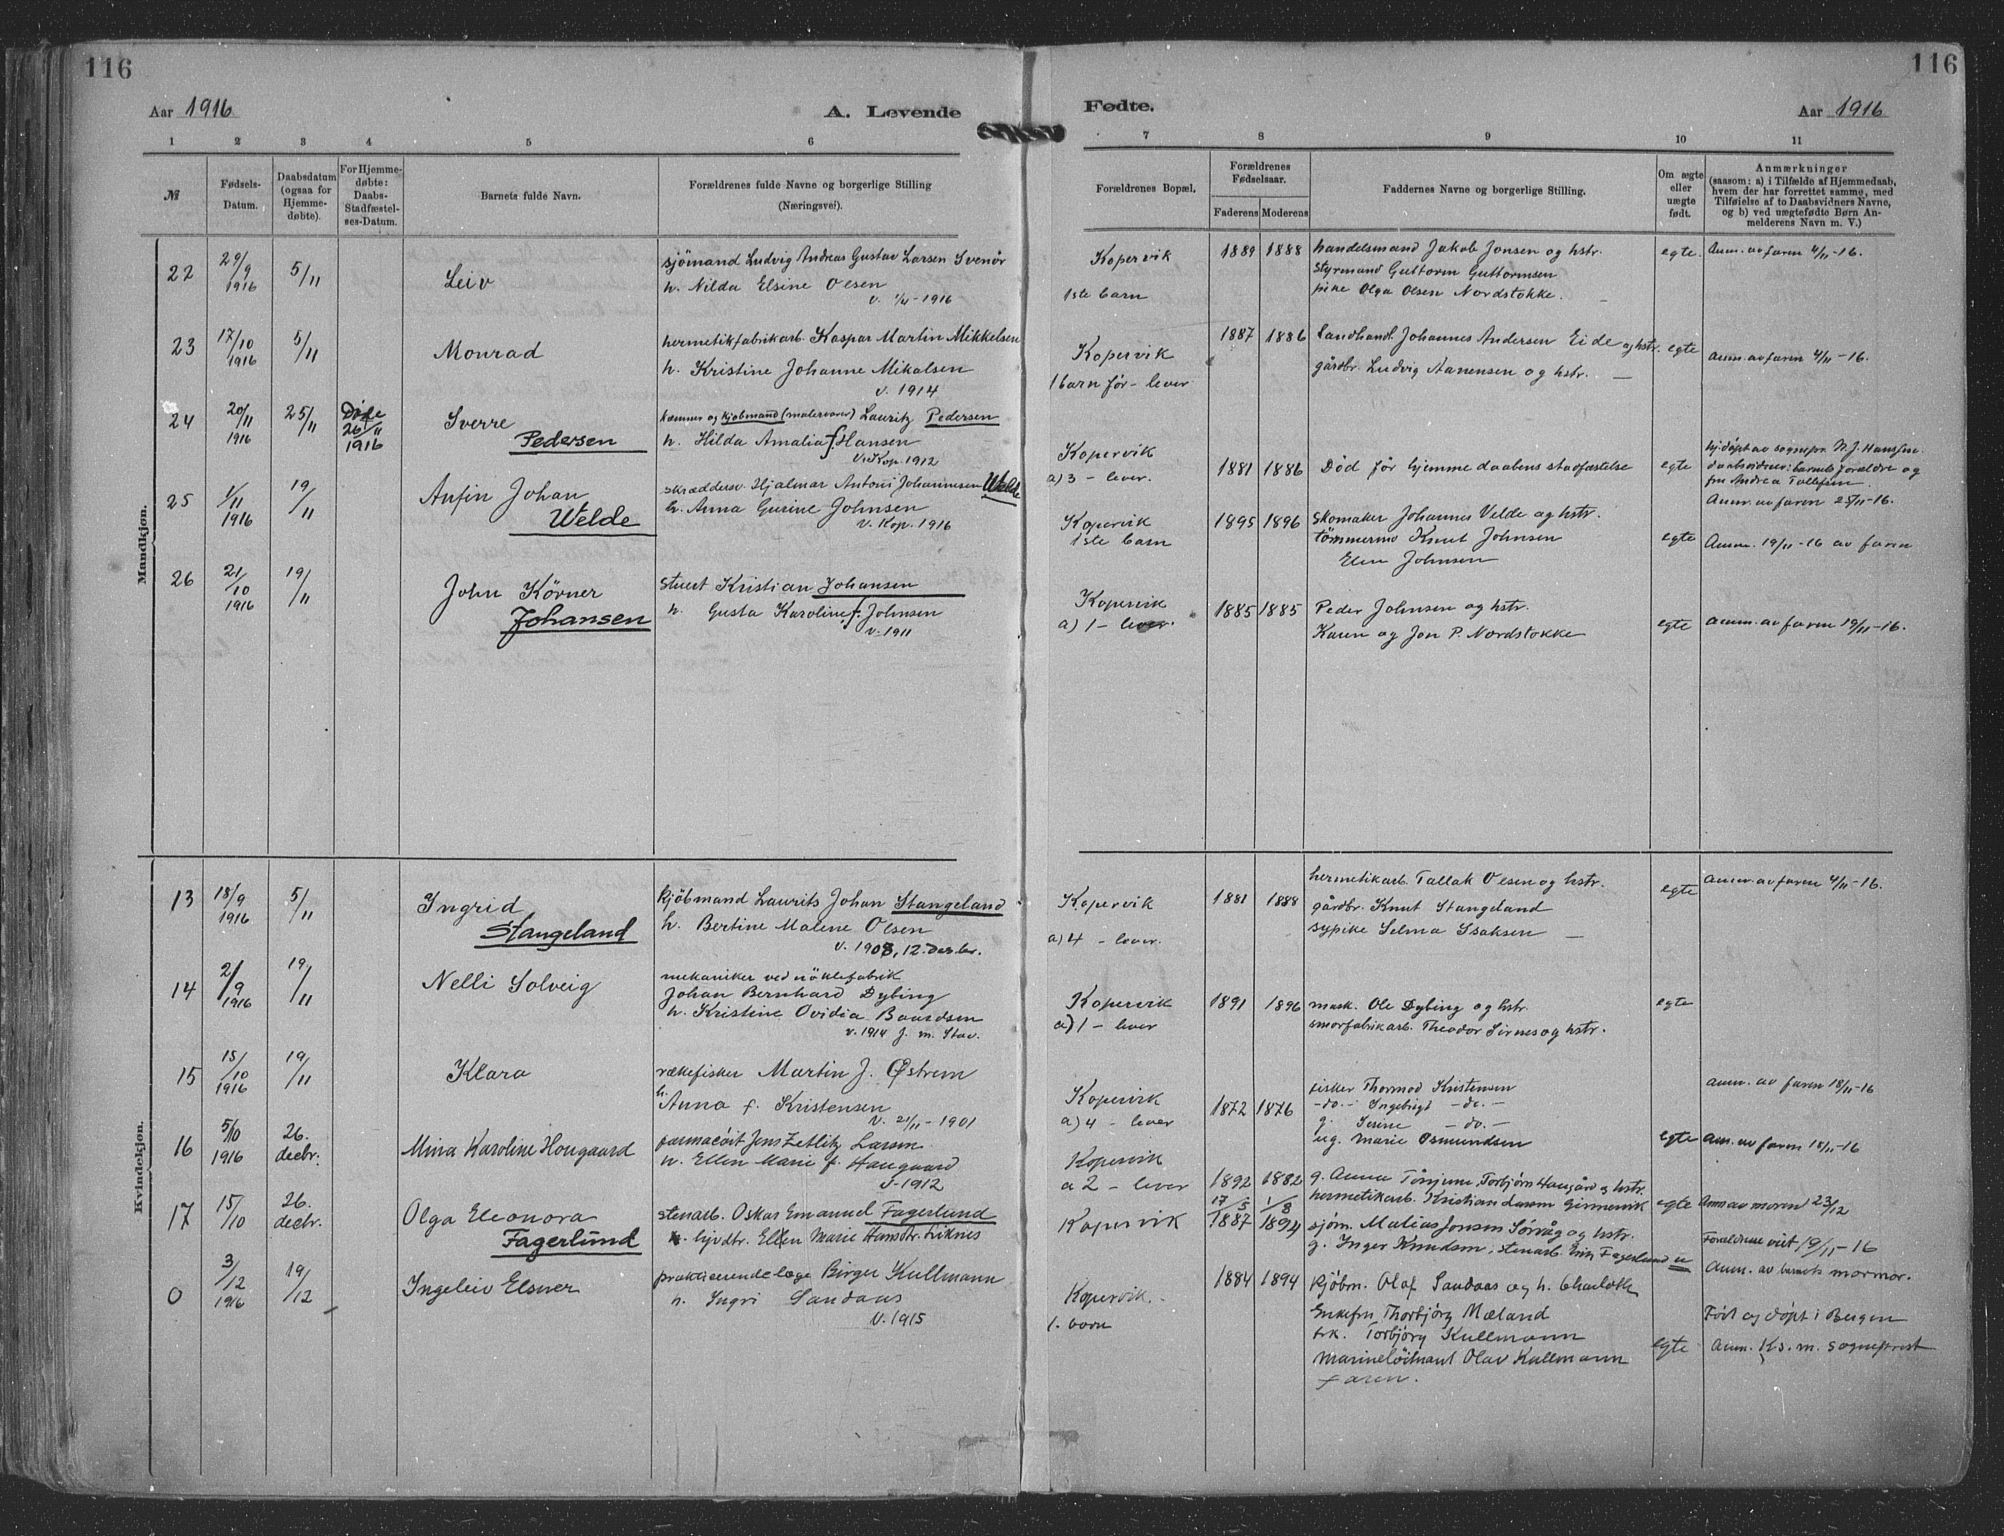 116
116
Aar 1916
A. Levende
Fødte.
Aar 1916
1 2 3 4 5 6 7 8 9 10 11
№
Fødsels-
Datum.
Daabsdatum
(ogsaa for
Hjemme-
døbte).
For Hjemme-
døbte:
Daabs-
Stadfæstel-
ses-Datum.
Barnets fulde Navn.
Forældrenes fulde Navne og borgerlige Stilling
(Næringsvei).
Forældrenes Bopæl.
Forældrenes
Fødselsaar.
Faderens Moderens
Faddernes Navne og borgerlige Stilling.
Om ægte
eller
uægte
født.
Anmærkninger
(saasom: a) i Tilfælde af Hjemmedaab,
hvem der har forrettet samme, med
Tilføielse af to Daabsvidners Navne,
og b) ved uægtefødte Børn An-
melderens Navn m. V.)
Mandkjøn.
22
29/9
1916
5/11
Leiv
sjömand Ludvig Andreas Gustav Larsen Svenör
h. Nilda Elsine Olsen
Kopervik
1ste barn
1889 1888
handelsmand Jakob Jonsen og hstr.
styrmand Guttorm Guttormsen
pike Olga Olsen Nordstokke.
egte.
Anm. av faren 4/11-16.
23
17/10
1916
5/11
Monrad
hermetikfabrikarb. Kaspar Martin Mikkelsen
h. Kristine Johanne Mikalsen
v. 1914
Kopervik
1 barn før - lever
1887 1886
Landhandl. Johannes Andersen Eide og hstr.
gårdbr. Ludvig Aanensen og hstr.
egte
Anm. av faren 4/11-16.
24
20/11
1916
25/11
Døde
26/11
1916
Sverre
Pedersen
kæmner og kjøbmand (malervarer) Lauritz Pedersen
h. Hilda Amalia f. Hansen
v. Kop. 1912
Kopervik
a) 3 - lever
1881 1886
Død før hjemmedaabens stadfæstelse
egte
hj.døpt av sognepr. N. J. Hansen
daabsvidner: barnets forældre og
fru Andrea Tollefsen.
Anm. av faren 25/11-16.
25
1/11
1916
19/11
Anfin Johan
Welde
skræddersv. Hjalmar Antoni Johannesen Welde
h. Anna Gurine Johnsen
v. Kop. 1916
Kopervik
1ste barn
1895 1896
Skomaker Johannes Velde og hstr.
tømmermd Knut Johnsen
Elen Johnsen
egte
Anm. 19/11-16 av faren
26
21/10
1916
19/11
John Körner
Johansen
stuert Kristian Johansen
h. Gusta Karoline f. Johnsen
v. 1911
Kopervik
a) 1 - lever.
1885 1885
Peder Johnsen og hstr.
Karen og Jon P. Nordstokke
egte
Anm. av faren 19/11-16.
Kvindekjøn.
13
18/9
1916
5/11
Ingrid
Stangeland
kjöbmand Laurits Johan Stangeland
h. Bertine Malene Olsen
v. 1908, 12. desbr.
Kopervik
a) 4 - lever.
1881 1888
hermetikarb. Tallak Olsen og hstr.
gårdbr. Knut Stangeland
sypike Selma Isaksen
egte
Anm. av faren 4/11-16.
14
2/9
1916
19/11
Nelli Solveig
mekaniker ved nöklefabrik
Johan Bernhard Dybing
h. Kristine Ovidia Baardsen
v. 1914 J. m. Stav.
Kopervik
a) 1 - lever
1891 1896
mask. Ole Dybing og hstr.
smørfabrikarb. Theodor Sirnes og hstr.
egte
Anm. av faren 18/11-16
15
15/10
1916
19/11
Klara
rækefisker Martin J. Østrem
h. Anna f. Kristensen
v. 21/11-1901
Kopervik
a) 4 - lever
1872 1876
fisker Thormod Kristensen
-do- Ingebrigt -do-
g. Serine -do-
ug. Marie Osmundsen
egte
Anm. av faren 18/11-16
16
5/10
1916
26.
decbr.
Mina Karoline Hougaard
farmacöit Jens Zetlitz Larsen
h. Ellen Marie f. Haugaard
v. 1912
Kopervik
a 2 - lever
1892 1882
g. Anna Tønjum, Torbjörn Haugård og hstr.
hermetikarb. Kristian Larsen
egte
Anm av moren 23/12
17
15/10
26.
decbr.
Olga Eleonora
Fagerlund
stenarb. Oskar Emanuel Fagerlund
h. Ellen Marie Hansdtr.
Kopervik
17/5 1887 1/8 1894
sjöm. Matias Jonsen Sörvåg og hstr.
g. Inger Knudsen, stenarb. Erik Fagerlund
Forældrene viet 19/11-16
Anm. av barnets mormor.
0
3/12
1916
19/12
Ingeleiv Elsner
praktiserende læge Birger Kullmann
h. Ingri Sandaas
v. 1915
Kopervik.
1. barn
1884 1894
kjöbm. Olaf Sandaas og h. Charlotte
Enkefru Thorbjörg Mæland
frk. Torbjörg Kullmann
Marinelöitnant Olav Kullmann
faren.
egte
Født og døpt i Bergen
Anm. Ks. m. sogneprest